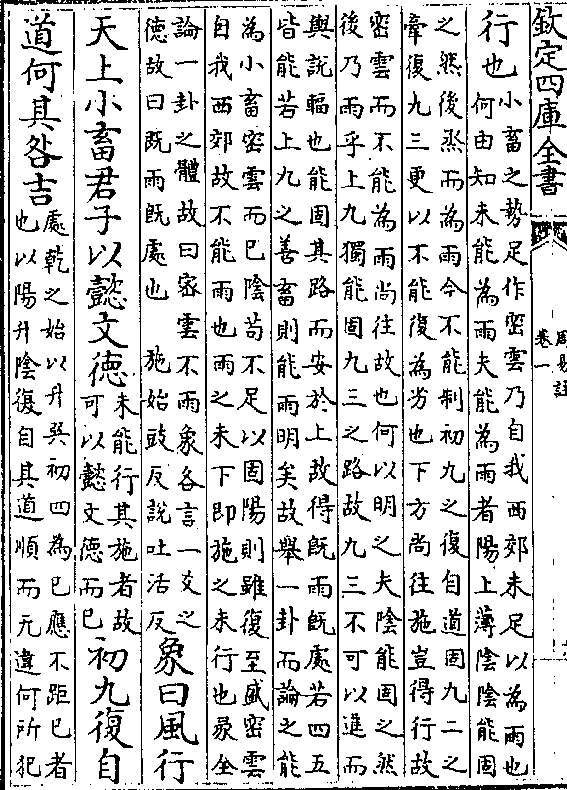 欽定四庫全書
周易註
卷一
行也
小畜之勢足作密雲乃自我西郊未足以為雨也
何由知未能為雨夫能為雨者陽上薄陰陰能固
之然後烝而為雨今不能制初九之復自道固九二之
牽復九三更以不能復為劣也下方尚往施豈得行故
密雲而不能為雨尚往故也何以明之夫陰能固之然
後乃雨乎上九獨能固九三之路故九三不可以進而
輿說輻也能固其路而安於上故得既雨既處若四五
皆能若上九之善畜則能雨明矣故舉一卦而論之能
為小畜密雲而已陰苟不足以固陽則雖復至盛密雲
自我西郊故不能雨也雨之未下即施之未行也彖全
論一卦之體故曰密雲不雨象各言一爻之
德故曰既雨既處也 施始豉反說吐活反
象曰風行
天上小畜君子以懿文德
未能行其施者故
可以懿文德而已
初九復自
道何其咎吉
處乾之始以升巽初四為已應不距已者
也以陽升陰復自其道順而无違何所犯